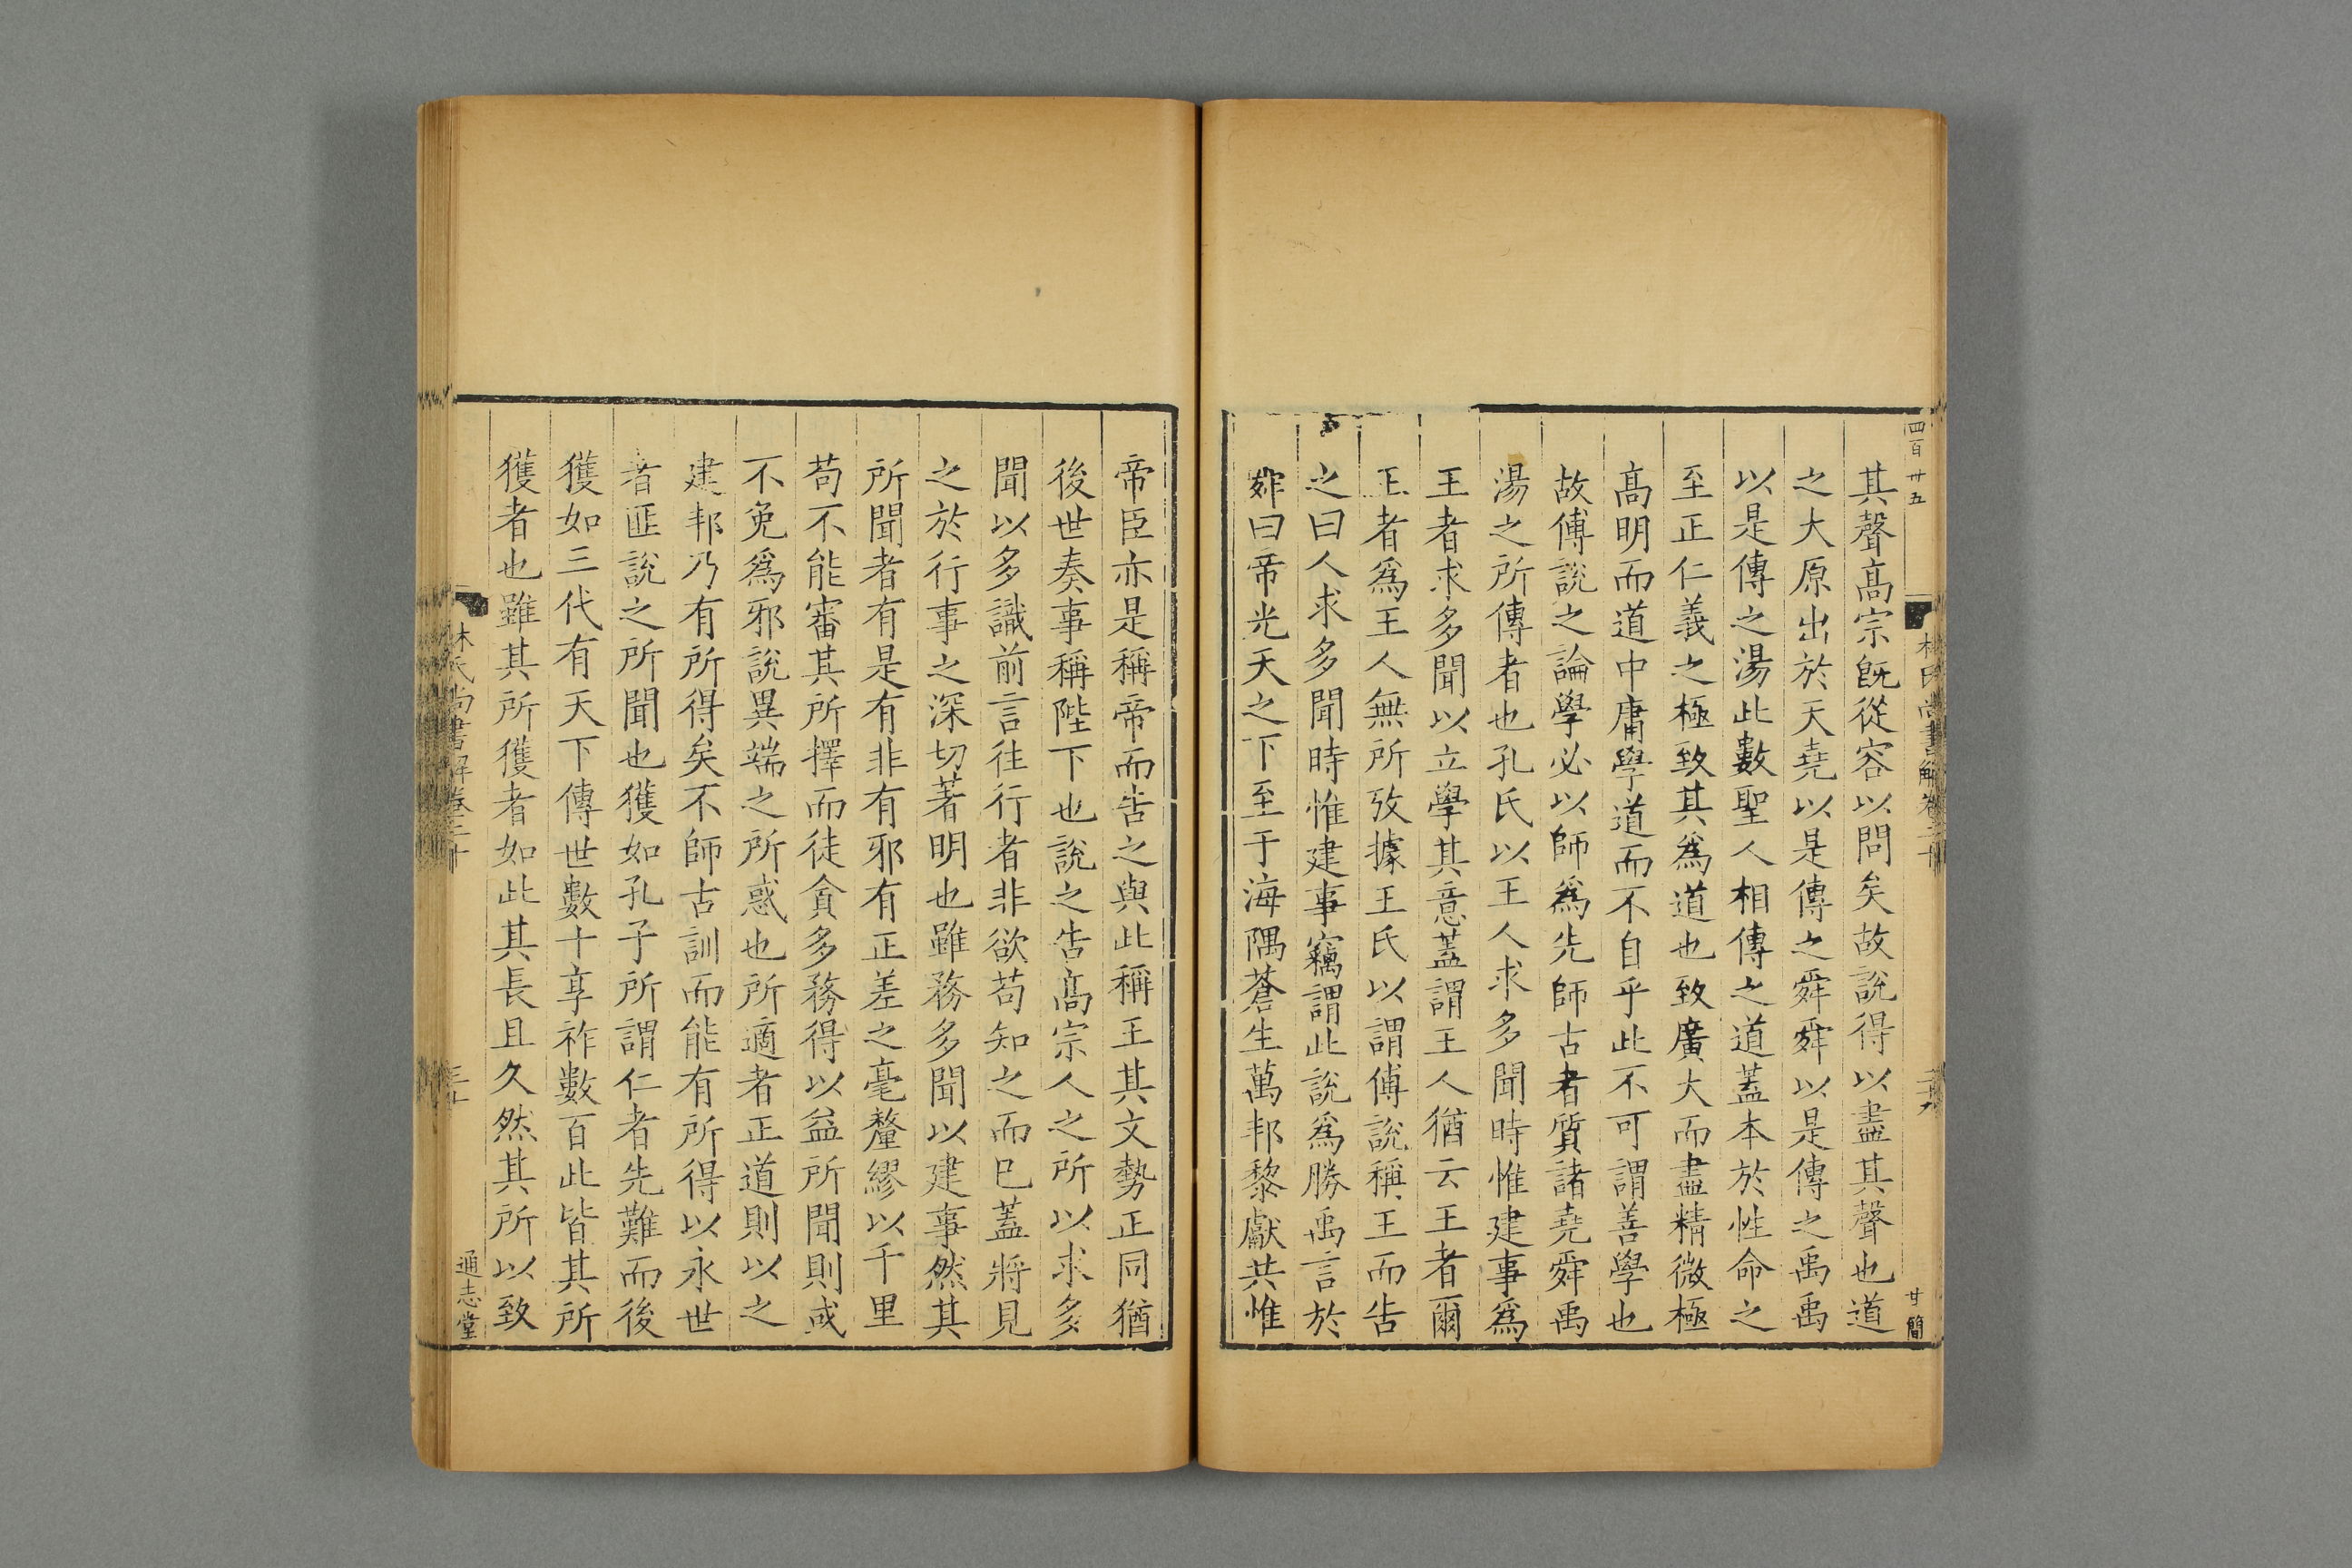 四百廿五
林氏尚書解卷二十
廿簡
其聲髙宗旣從容以問矣故說得以盡其聲也道
之大原出於天堯以是傳之舜舜以是傳之禹禹
以是傳之湯此數聖人相傳之道蓋本於性命之
至正仁義之極致其爲道也致廣大而盡精微極
髙明而道中庸學道而不自乎此不可謂善學也
故傅說之論學必以師爲先師古者質諸堯舜禹
湯之所傳者也孔氏以王人求多聞時惟建事爲
王者求多聞以立學其意蓋謂王人猶云王者爾
王者爲王人無所攷據王氏以謂傅說稱王而告
之曰人求多聞時惟建事竊謂此說爲勝禹言於
舜曰帝光天之下至于海隅蒼生萬邦黎獻共惟
帝臣亦是稱帝而告之與此稱王其文勢正同猶
後世奏事稱陛下也說之告髙宗人之所以求多
聞以多識前言往行者非欲苟知之而已蓋將見
之於行事之深切著明也雖務多聞以建事然其
所聞者有是有非有邪有正差之毫釐繆以千里
苟不能審其所擇而徒貪多務得以益所聞則或
不免爲邪說異端之所惑也所適者正道則以之
建邦乃有所得矣不師古訓而能有所得以永世
者匪說之所聞也獲如孔子所謂仁者先難而後
獲如三代有天下傳世數十享祚數百此皆其所
獲者也雖其所獲者如此其長且久然其所以致
林氏尚書解卷二十
通志堂